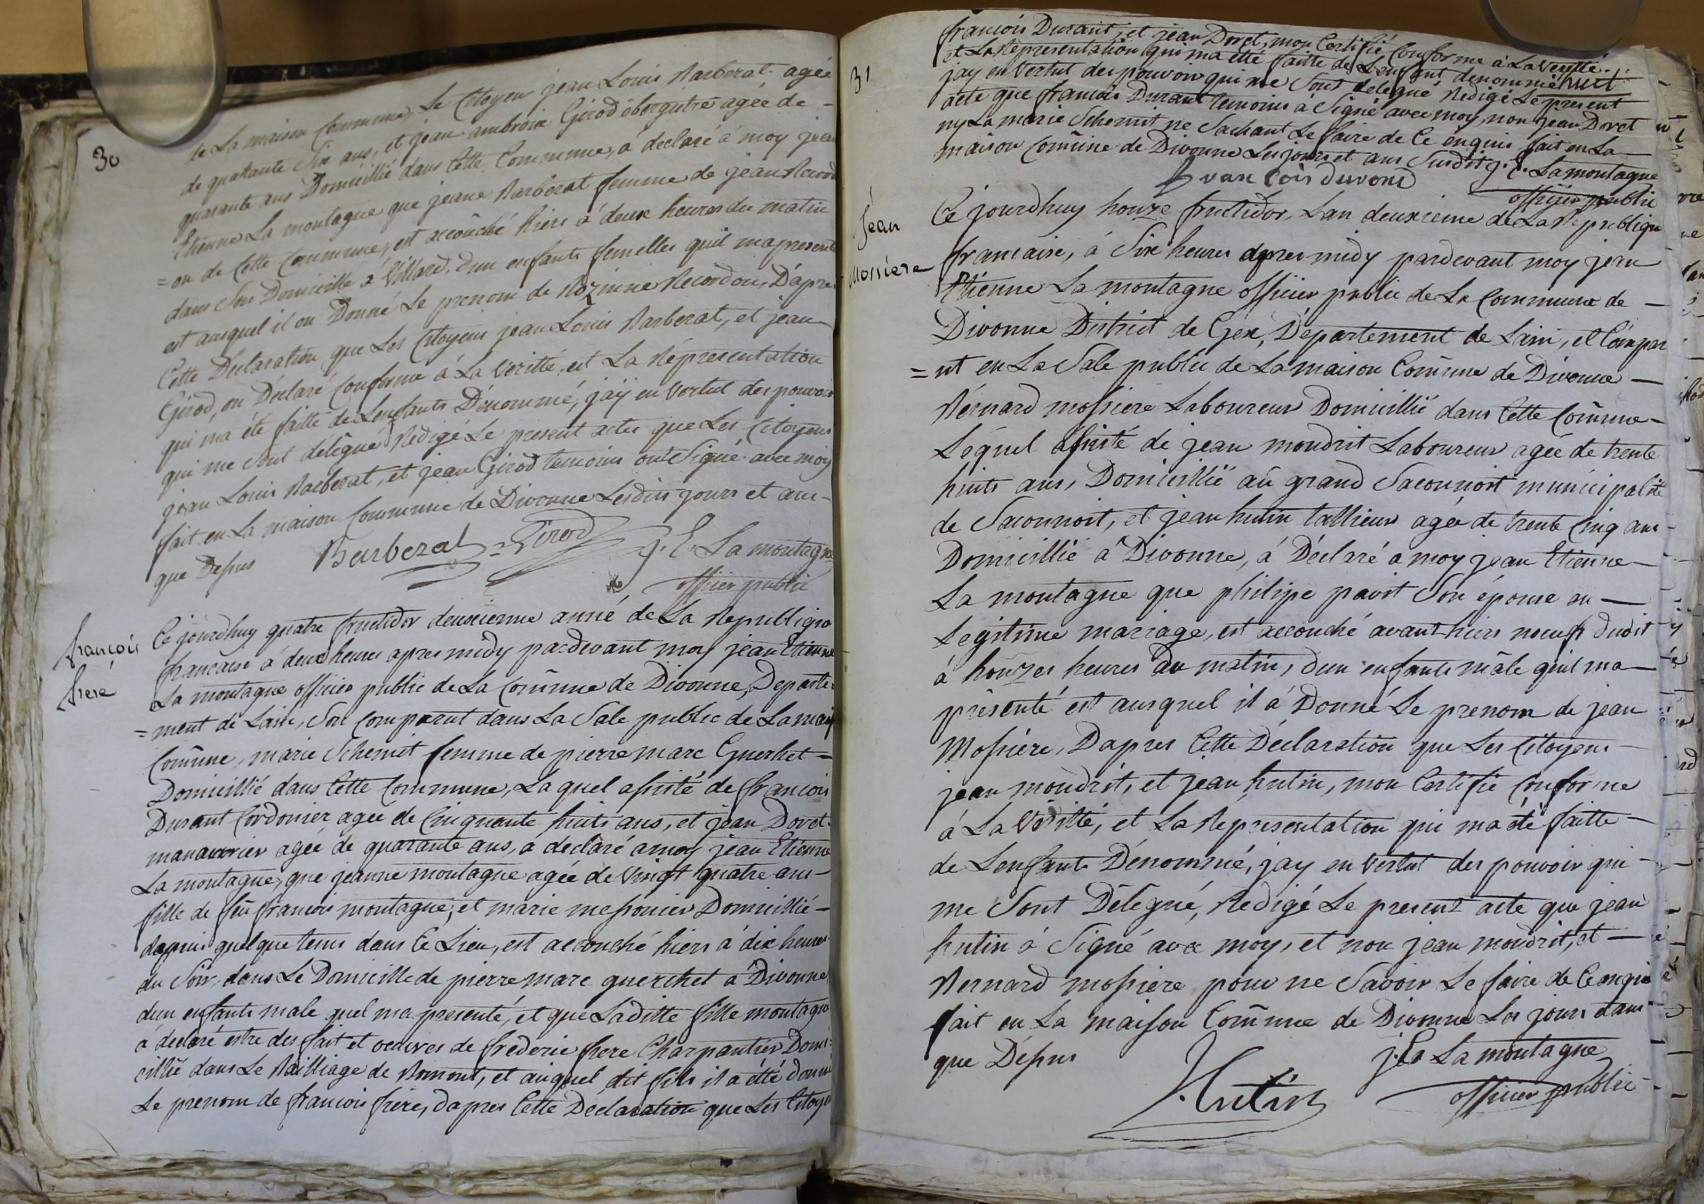 30
de La maison Commune, Le Citoyen jean Louis Barberat agée
de quattante Six ans, et jean ambroise Girod aberguitre agée de
quarante ans Domicillié dans Cette Commune, à déclaré à moy jean
Etienne La montagne que jeane Barberat femme de jean Record
=on de Cette Commune, est accouché hiers à deux heures du matin
dans Son Domicille à Villard, d'un enfants femelles quil ma presenté
est auquel il ou Donné Le prenom de Rozinne Recordon, D'apres
Cette Déclaration que Les Citoyens jean Louis Barberat, et jean
Girod, on Déclaré Conforme à La Veritté, est La Réprésentation
qui ma été faitte de Lenfants Dénommé, j'ay en Vertut des pouvoir
qui me Sont delégué Redigé Le present actes que Les Citoyens
jean Louis Barberat, et jean Girod temoins ont Signé avec moy
fait en La maison Commune de Divonne Lesdits jours et an
que Depus Barberat Girod J. E. La montagne
officier public
françois
frere
Ce jourdhuy quatre fructidor deuxienne année de La Republique
francaise à deux heures apres midy pardevant moy jean Etienne
La montagne officier public de La Comune de Divonne, Departe
=ment de Lain, Son Comparut dans La Sale public de La maison
Comune, marie Schemit femme de pierre marc Guerchet =
Domicillié dans Cette Commune, La quel assisté de francois
Durant Cordonier agée de Cinquante huits ans, et jean Dovet
manavrier agée de quarante ans, a déclaré a moy jean Etienne
La montagne, que jeanne montagne agée de Vingt quatre ans
fille de feu francois montagne, et marie messonier Domicillié
deppuis quelque tems dans Ce Lieu, est accouché hiers à dix heures
du Soir, dans Le Domicille de pierre marc guerchet à Divonne,
d'un enfants male quel ma presenté, et que Laditte fille montagne
à declaré estre des fait et oeuvres de frederic frere Charpantier Domi
cillié dans Le Bailliage de Romont, et auquel dit fils il a etté donné
Le prenom de francois frere, dapres Cette Déclaration que Les Citoyens
31
francois Durant, et jean Dovet, mon Certifié Conforme à La Veritté
et La Representation qui ma etté faitte de Lenfant denommé
jay en Vertut des pouvoir qui me Sont delegué Redigé Le present
acte que francois Durant temoins à Signé avec moy, non jean Dovet
ny La marie Schemit ne Sachant Le faire de Ce enquis fait en La
maison Comune de Divonne Les jours et ans Susdit J. E. La montagne
officier public
Jean
Mossiere
Ce jourdhuy honze fructidor, Lan deuxieme de La Republique
francaise, à Six heures apres midy pardevant moy jean
Etienne La montagne officier public de La Commune de
Divonne District de Gex, Departement de Lain, est Compar
=ut en La Sale public de La maison Comune de Divonne
Bernard mossiere Laboureur Domicillié dans Cette Comune
Lequel assisté de jean moudrit Laboureur agée de trente
huits ans, Domicillié au grand Saconnoit municipalité
de Saconnoit, et jean hutin tallieur agée de trente Cinq ans
Domicillié à Divonne, à Déclaré a moy jean Etienne
La montagne que philipe pavit Son épouse en
Legitime mariage, est accouché avant hiers neuf dudit
à honzes heures du matin, d'un enfants mâle quil ma
présenté est auquel il à Donné Le prenom de jean
Mossiére, Dapres Cette Déclaration que Les Citoyens
jean moudrit, et jean hutin, mon Certifié Conforme
à La Véritté, et La Réprésentation qui ma été faitte
de Lenfants Dénommé, jay en Vertut des pouvoir qui
me Sont Délégué, Redigé Le present acte que jean
hutin à Signé avec moy, et non jean moudrit, et
Bernard mossiere pour ne Savoir Le faire de Ce enquis
fait en La maison Comune de Divonne Les jours et ans
que Dépus J. E. La montagne
J. hutin officier public